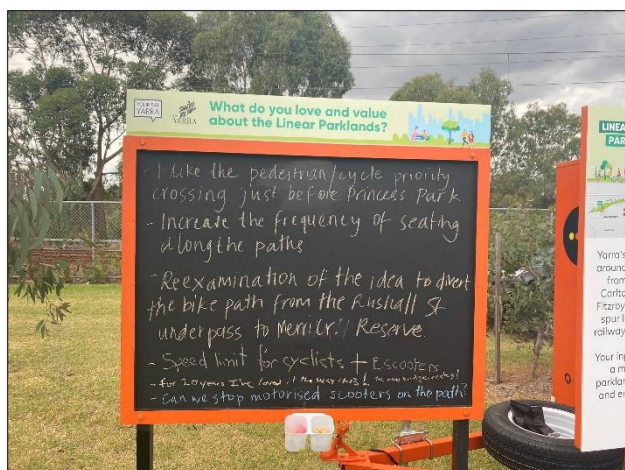 YOUR SAY
YARRA
YARRA
What do you love and value
about the Linear Parklands?
- I like the pedestrian/cycle priority
crossing just before Princes Park.
- Increase the frequency of seating
along the paths
- Reexamination of the idea to divert
the bike path from the Rushall St
underpass to Merri Cr. Reserve.
- Speed limit for cyclists + Escooters
- for 20 years I've loved it the way it is! the new bridge is
- Can we stop motorised scooters on the path?
LINEA
PAR
Yarra's
around
from
Carlto
Fitzroy
spur li
railway
Your inp
a m
parklan
and en